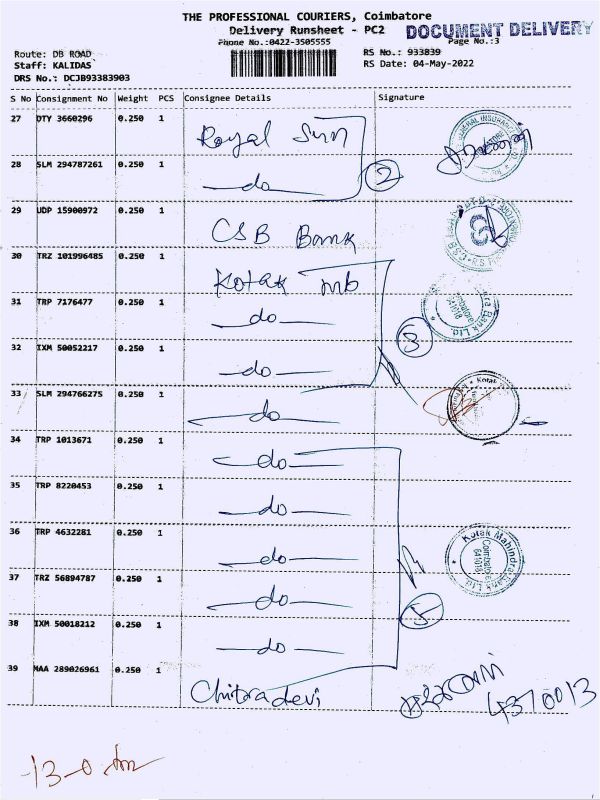 THE PROFESSIONAL COURIERS, Coimbatore
Delivery Runsheet - PC2
DOCUMENT DELIVERY
Phone No.:0422-3505555
Page No.:3
Route: DB ROAD
Staff: KALIDAS
DRS No.: DCJB93383903
RS No.: 933839
RS Date: 04-May-2022
S No Consignment No Weight PCS Consignee Details Signature
27 DTY 3660296 0.250 1 Royal Sun
28 SLM 294787261 0.250 1 do 2
29 UDP 15900972 0.250 1 CSB Bank
30 TRZ 101996485 0.250 1 Kotak mb
31 TRP 7176477 0.250 1 do
32 IXM 50052217 0.250 1 do 3
33 SLM 294766275 0.250 1 do
34 TRP 1013671 0.250 1 do
35 TRP 8220453 0.250 1 do
36 TRP 4632281 0.250 1 do Kotak Mahindra Bank Ltd. Coimbatore
37 TRZ 56894787 0.250 1 do 5
38 IXM 50018212 0.250 1 do
39 MAA 289026961 0.250 1 Chitradevi
4370013